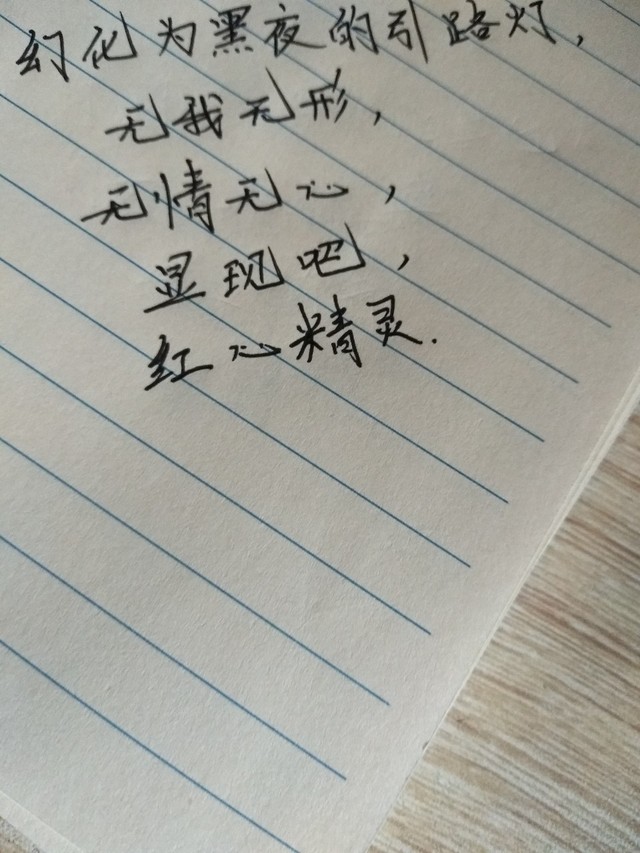 幻化为黑夜的引路灯，
无我无形，
无情无心，
显现吧，
红心精灵.